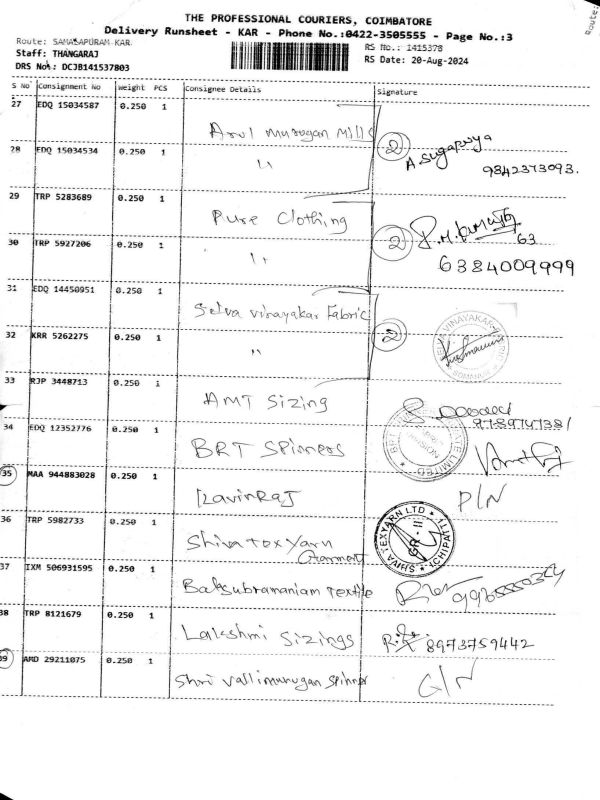 THE PROFESSIONAL COURIERS, COIMBATORE
Delivery Runsheet - KAR - Phone No.:0422-3505555 - Page No.:3
Route: SAMASAPURAM-KAR
RS No.: 1415378
Staff: THANGARAJ
RS Date: 20-Aug-2024
DRS No.: DCJB141537803
Route:
S No Consignment No Weight PCS Consignee Details Signature
27 EDQ 15034587 0.250 1 Arul Murugan Mills
28 EDQ 15034534 0.250 1 " 2 A. Sugapriya
9842373093.
29 TRP 5283689 0.250 1 Pure Clothing
30 TRP 5927206 0.250 1 " 2 63
6384009999
31 EDQ 14450951 0.250 1 Selva Vinayakar Fabric
32 KRR 5262275 0.250 1 " 2 VINAYAKAR
33 RJP 3448713 0.250 1 AMT Sizing
9789747381
34 EDQ 12352776 0.250 1 BRT Spinners
35 MAA 944883028 0.250 1 P/N
36 TRP 5982733 0.250 1 Shiva Texyarn SHIVA TEXYARN LTD
Garment GR - II
37 IXM 506931595 0.250 1 Balsubramaniam Textile
38 TRP 8121679 0.250 1 Lakshmi Sizings 8973759442
39 AMD 29211075 0.250 1 Shri Vallimurugan Spinner G/N